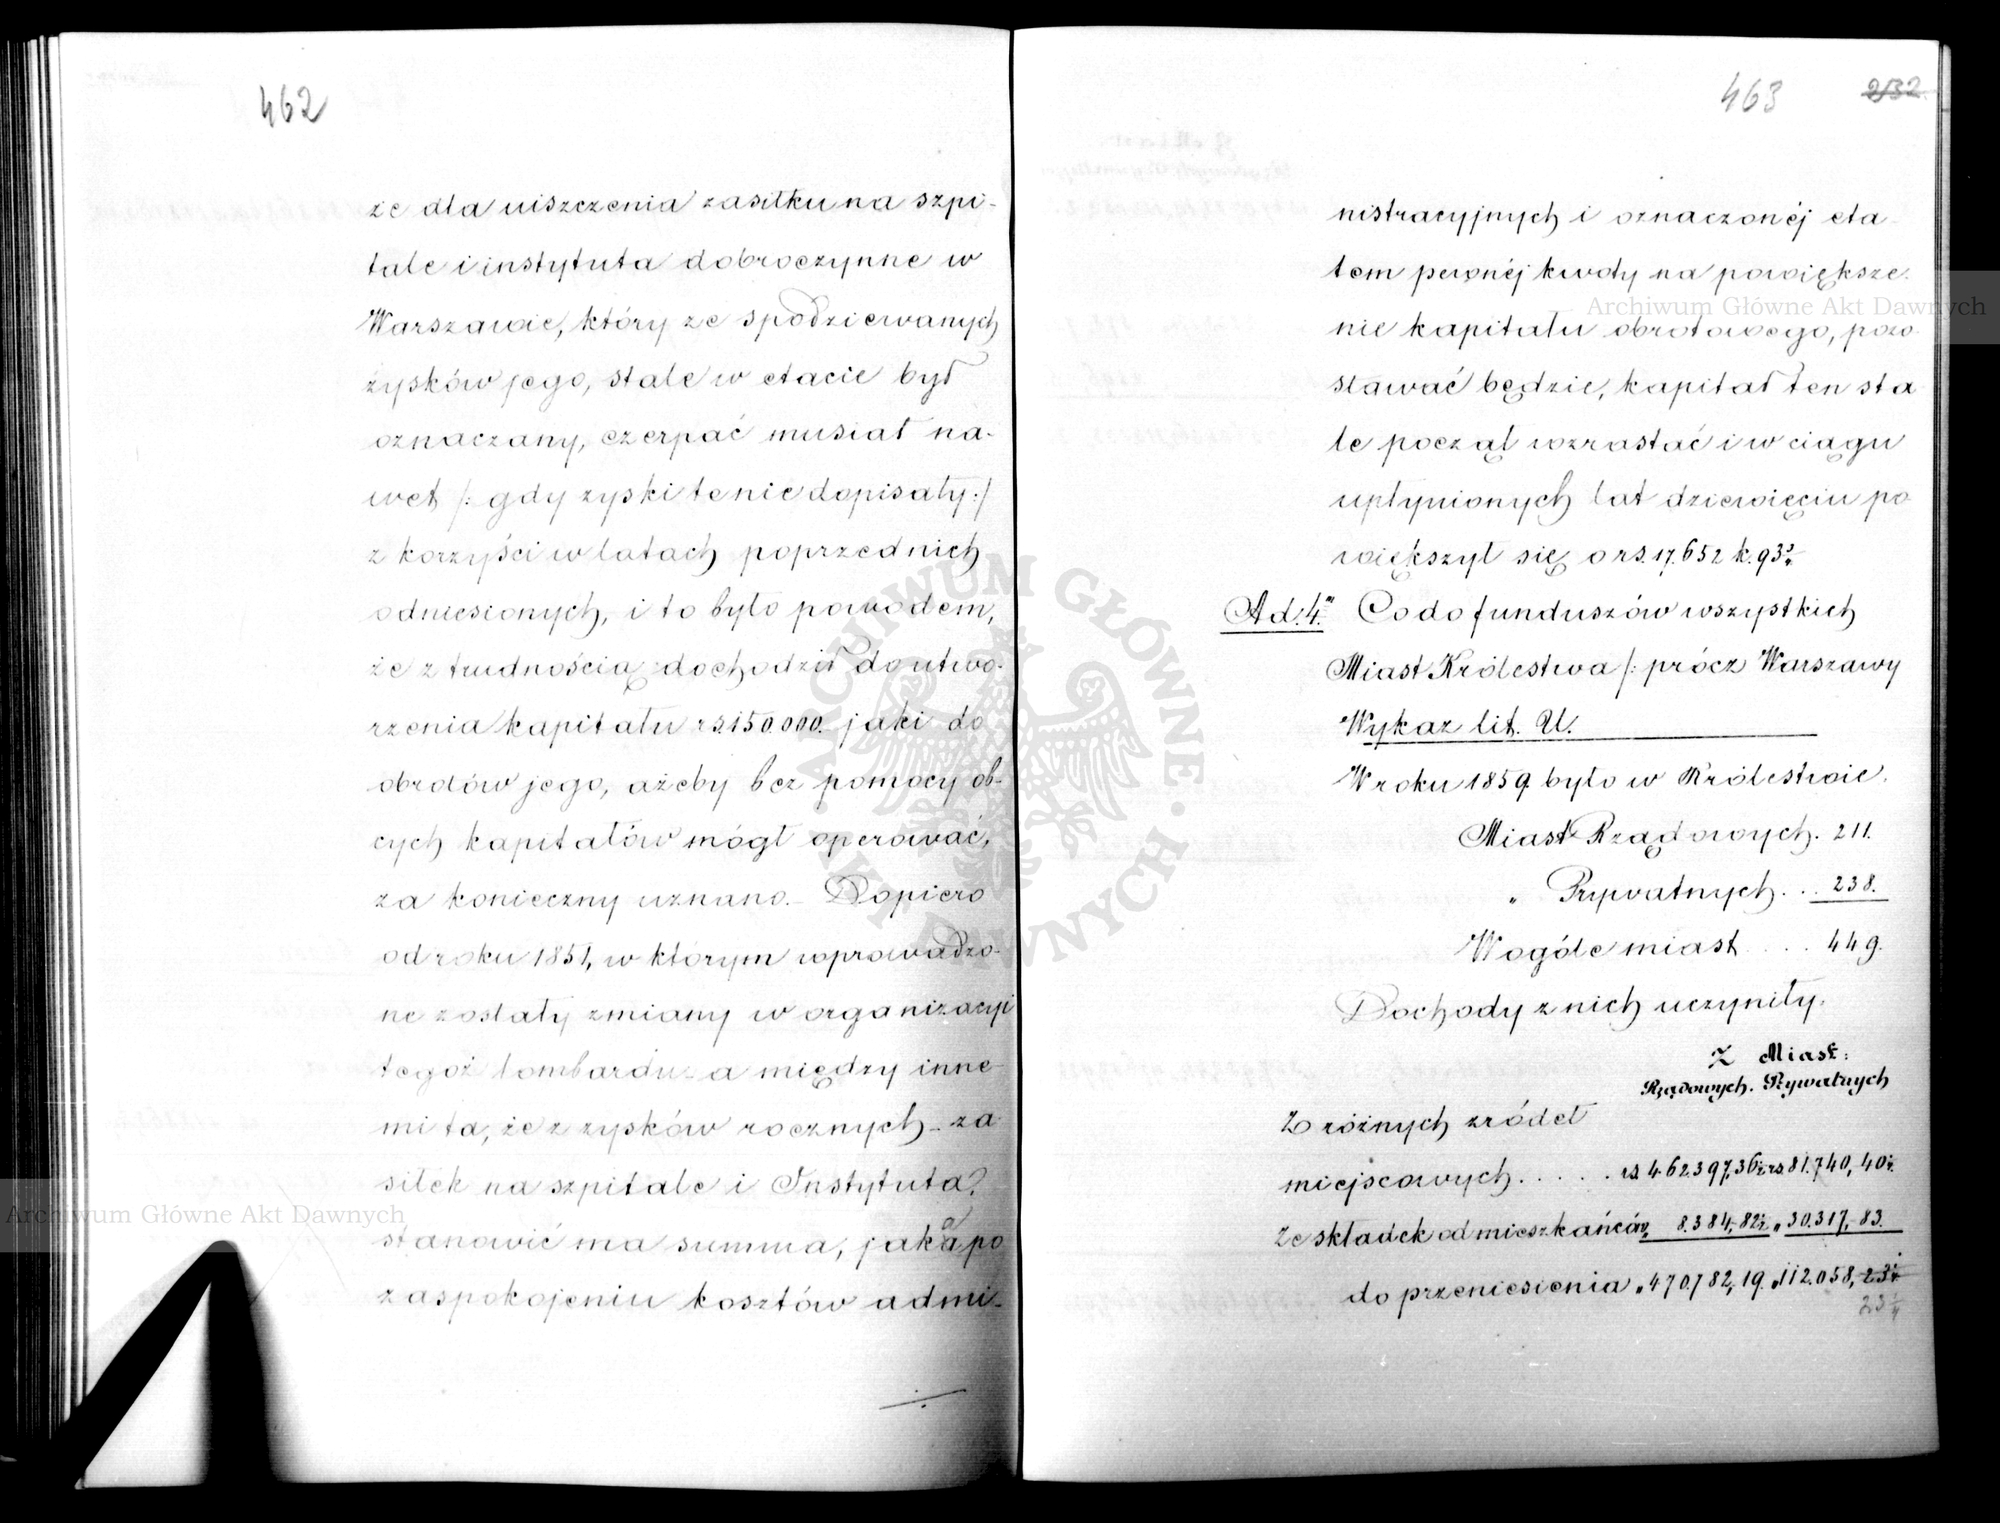 462
że dla uiszczenia zasiłku na szpi-
tale i instytuta dobroczynne w
Warszawie, który ze spodziewanych
zysków jego, stale w etacie był
oznaczany, czerpać musiał na-
wet /: gdy zyski te nie dopisały :/
z korzyści w latach poprzednich
odniesionych, i to było powodem,
że z trudnością dochodził do utwo-
rzenia kapitału rs. 150.000. jaki do
obrotów jego, ażeby bez pomocy ob-
cych kapitałów mógł operować,
za konieczny uznano. – Dopiero
od roku 1851, w którym wprowadzo-
ne zostały zmiany w organizacyi
tegoż lombardu – a między inne-
mi ta, że z zysków rocznych – za
siłek na szpitale i Instytuta
stanowić ma summa, jaka po
zaspokojeniu kosztów admi-
463 232.
nistracyjnych i oznaczonéj eta-
tem pewnéj kwoty na powiększe-
nie kapitału obrotowego, pozo-
stawać będzie, kapitał ten sta
le począł wzrastać i w ciągu
upłynionych lat dziewięciu po
większył się o rs. 17.652 k. 93½
Ad. 4. Co do funduszów wszystkich
Miast Królestwa /: prócz Warszawy
Wykaz lit. U.
W roku 1859. było w Królestwie.
Miast Rządowych. 211.
" Prywatnych. .. 238.
Wogóle miast .... 449.
Dochody z nich uczyniły.
Z Miast:
Rządowych. Prywatnych
Z różnych źródeł
miejscowych. .... rs. 462.397,36½ rs. 81.740,40½
Ze składek od mieszkańców " 8.384,82½ " 30.317,83.
do przeniesienia " 470.782,19. " 112.058, 23¼
23¼
Archiwum Główne Akt Dawnych
Archiwum Główne Akt Dawnych
ARCHIWUM GŁÓWNE AKT DAWNYCH